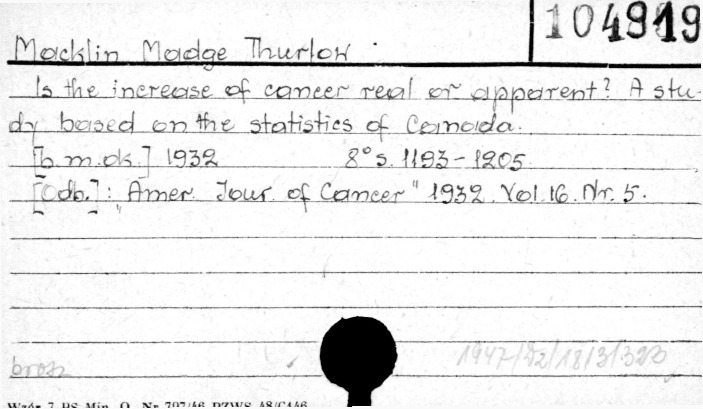 104919
Macklin Madge Thurlow
Is the increase of cancer real or apparent? A stu-
dy based on the statistics of Canada.
[b.m.dk.] 1932 8° s. 1193-1205
[Odb.]: "Amer. Jour. of Cancer" 1932. Vol. 16. Nr. 5.
brosz
Wzór 7 PS Min. O. Nr 797/46 PZWS